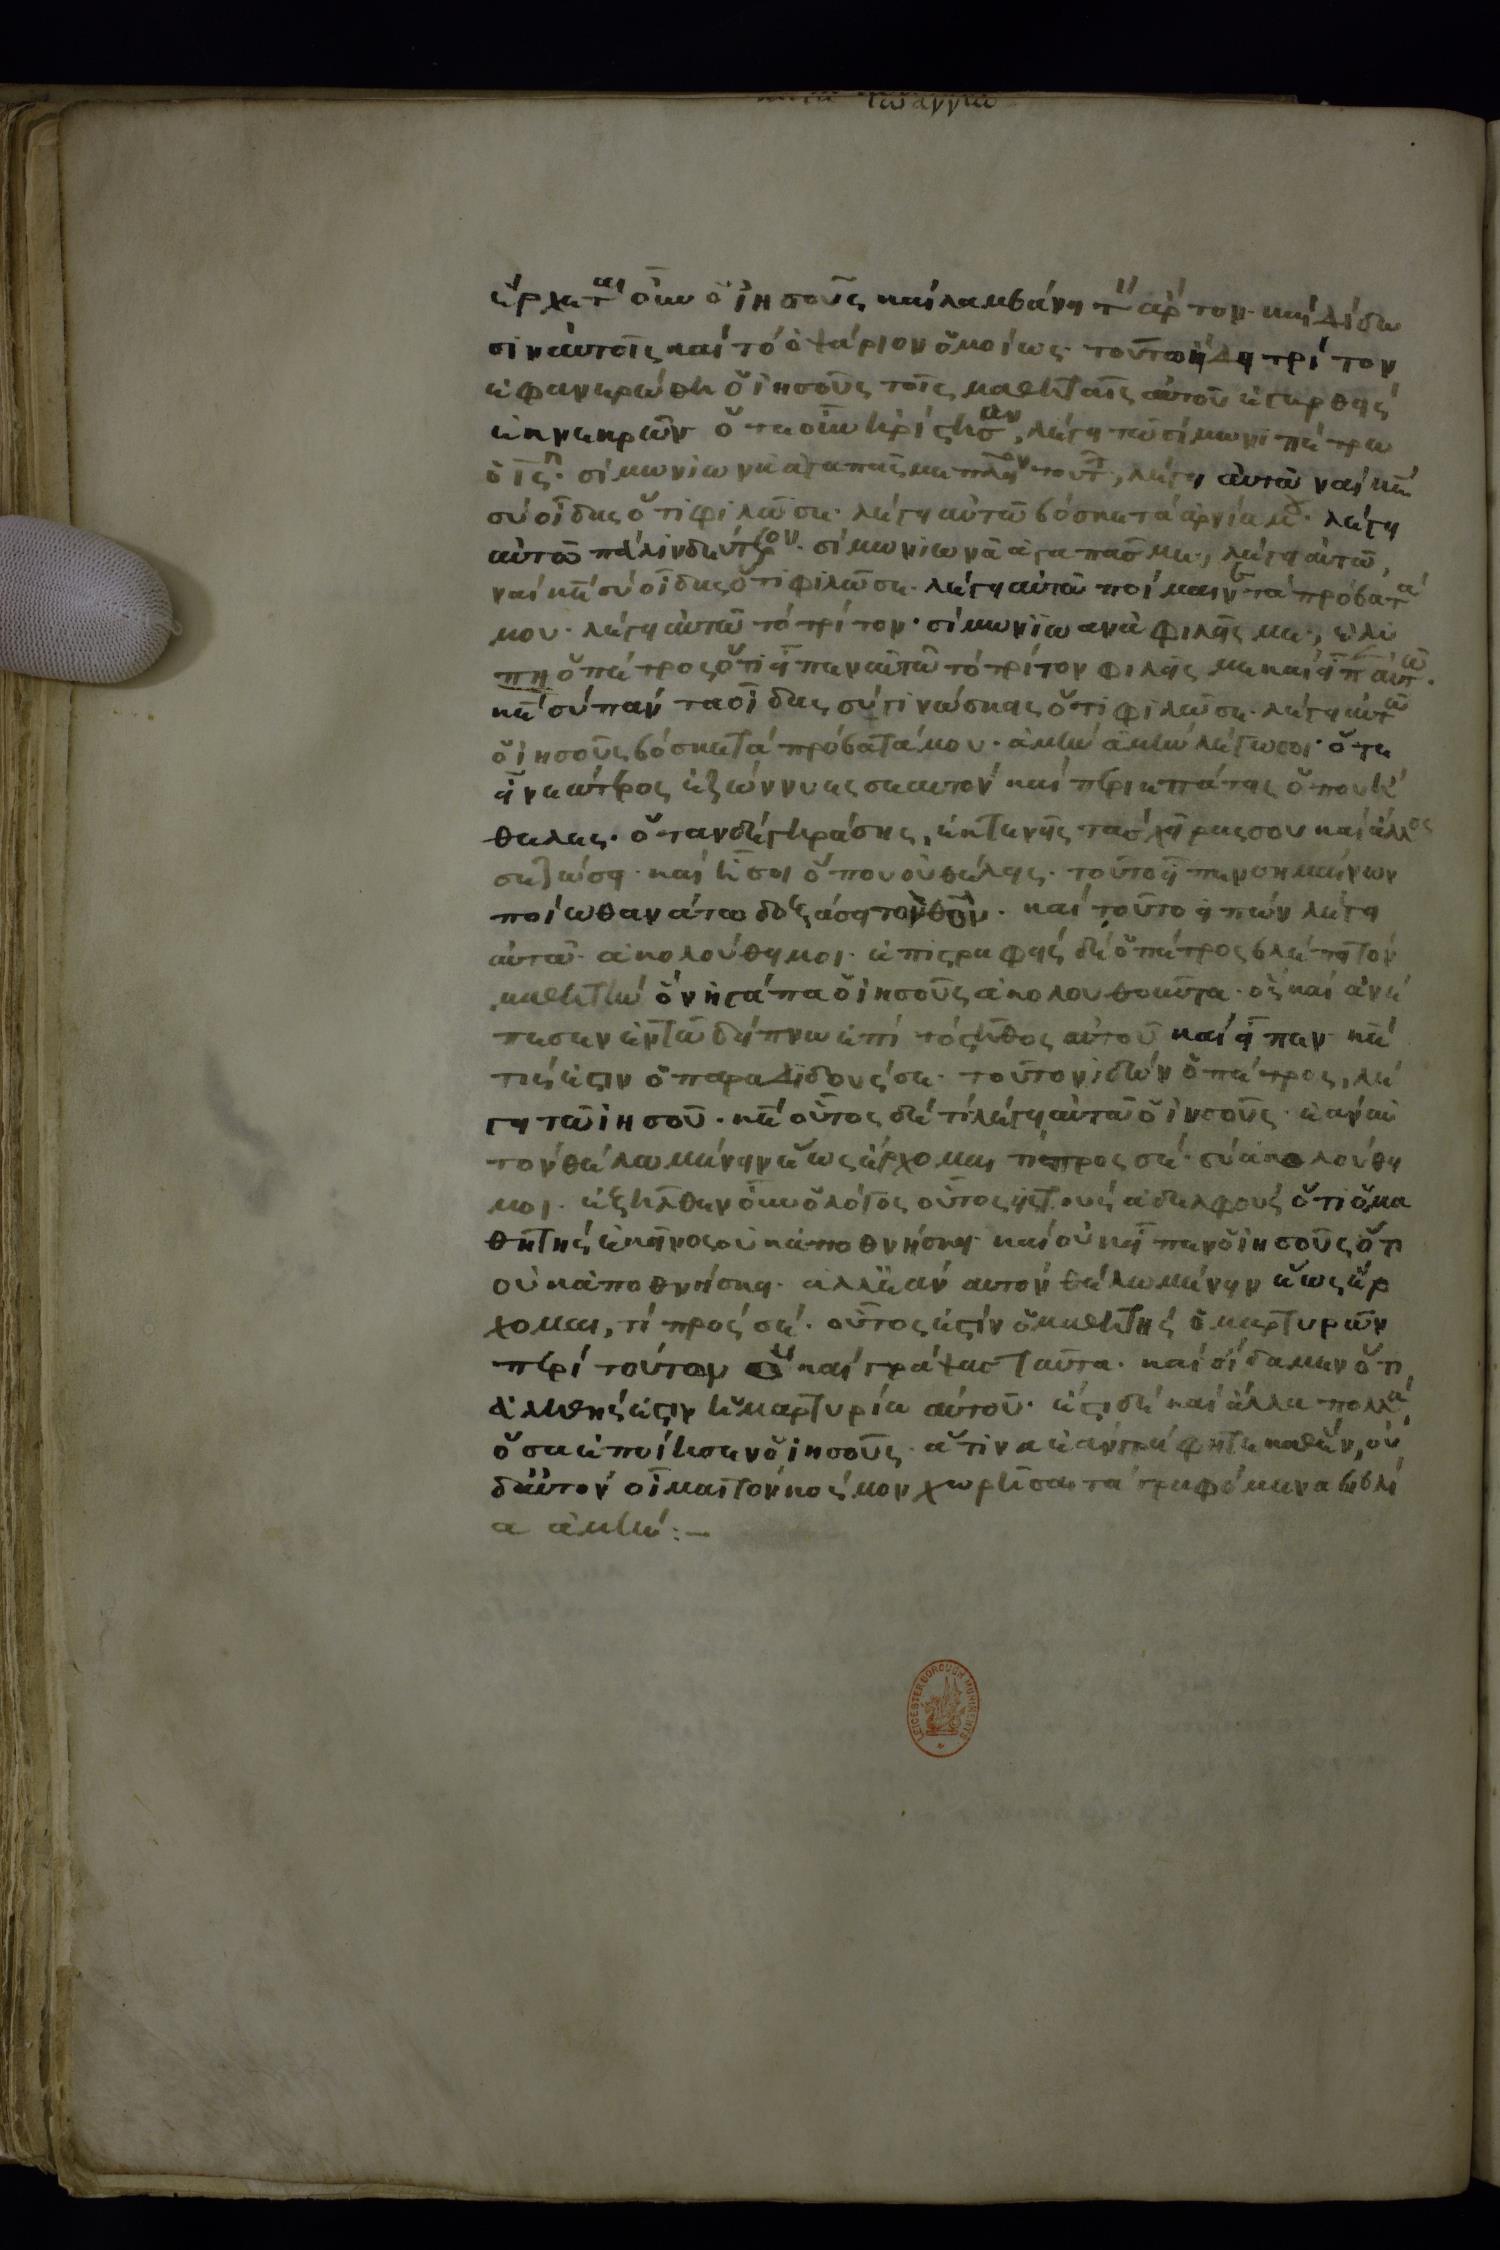 κατὰ ἰωάννην
ἔρχεται οὖν ὁ ἰησοῦς καὶ λαμβάνει τὸν ἄρτον· καὶ δίδω
σιν αὐτοῖς καὶ τὸ ὀψάριον ὁμοίως· τοῦτω ἤδη τρίτον
ἐφανερώθη ὁ ἰησοῦς τοῖς μαθηταῖς αὐτοῦ ἐγερθεὶς
ἐκ νεκρῶν ὅτε οὖν ἠρίστησαν, λέγει τῶ σίμωνι πέτρω
ὁ ις· σίμων ἰωνᾶ ἀγαπᾶς με πλεῖον τούτων, λέγει αὐτῶ ναὶ κε
σὺ οἶδας ὅτι φιλῶ σε· λέγει αὐτῶ βόσκε τὰ ἀρνία μου· λέγει
αὐτῶ πάλιν δεύτερον· σίμων ἰωνᾶ ἀγαπᾶς με, λέγει αὐτῶ,
ναὶ κε σὺ οἶδας ὅτι φιλῶ σε· λέγει αὐτῶ ποίμαινε τὰ πρόβατά
μου· λέγει αὐτῶ τὸ τρίτον· σίμων ἰωανᾶ φιλεῖς με, ἐλυ
πη ὁ πέτρος ὅτι εἶπεν αὐτῶ τὸ τρίτον φιλεῖς με καὶ εἶπεν αὐτῶ·
κε σὺ πάντα οἶδας σὺ γινώσκεις ὅτι φιλῶ σε· λέγει αὐτῶ
ὁ ἰησοῦς βόσκε τὰ πρόβατά μου· ἀμὴν ἀμὴν λέγω σοι· ὅτε
ἦς νεώτερος ἐζώννυες σεαυτὸν καὶ περιεπάτεις ὅπου ἤ
θελες· ὅταν δὲ γηράσης, ἐκτενεῖς τὰς χεῖρας σου καὶ ἄλλος
σε ζώσει· καὶ οἴσει ὅπου οὐ θέλεις· τοῦτο εἶπεν σημαίνων
ποίω θανάτω δοξάσει τὸν θεόν· καὶ τοῦτο εἰπὼν λέγει
αὐτῶ· ἀκολούθει μοι· ἐπιστραφεὶς δὲ ὁ πέτρος βλέπει τὸν
μαθητὴν ὃν ἠγάπα ὁ ἰησοῦς ἀκολουθοῦντα· ὃς καὶ ἀνέ
πεσεν ἐν τῶ δείπνω ἐπὶ τὸ στῆθος αὐτοῦ καὶ εἶπεν κε
τίς ἐστιν ὁ παραδιδούς σε· τοῦτον ἰδὼν ὁ πέτρος, λέ
γει τῶ ἰησοῦ· κε οὗτος δὲ τί λέγει αὐτῶ ὁ ἰησοῦς· ἐὰν αὐ
τὸν θέλω μένειν ἕως ἔρχομαι τί πρὸς σέ· σὺ ἀκολούθει
μοι· ἐξῆλθεν οὖν ὁ λόγος οὗτος εἰς τοὺς ἀδελφοὺς ὅτι ὁ μα
θητὴς ἐκεῖνος οὐκ ἀποθνήσκει· καὶ οὐκ εἶπεν ὁ ἰησοῦς ὅτι
οὐκ ἀποθνήσκει· ἀλλ' ἐὰν αυτὸν θέλω μένειν ἕως ἔρ
χομαι, τί πρὸς σέ· οὗτος ἐστὶν ὁ μαθητὴς ὁ μαρτυρῶν
περὶ τούτων ὁ καὶ γράψας ταῦτα· καὶ οἴδαμεν ὅτι
ἀληθής ἐστιν ἡ μαρτυρία αὐτοῦ· ἔστι δὲ καὶ ἄλλα πολλὰ,
ὅσα ἐποίησεν ὁ ἰησοῦς· ἅτινα ἐὰν γράφηται καθ' ἕν, οὐ
δ' αὐτὸν οἶμαι τὸν κόσμον χωρῆσαι τὰ γραφόμενα βιβλί
α ἀμήν:—
LEICESTER BOROUGH MUNIMENTS